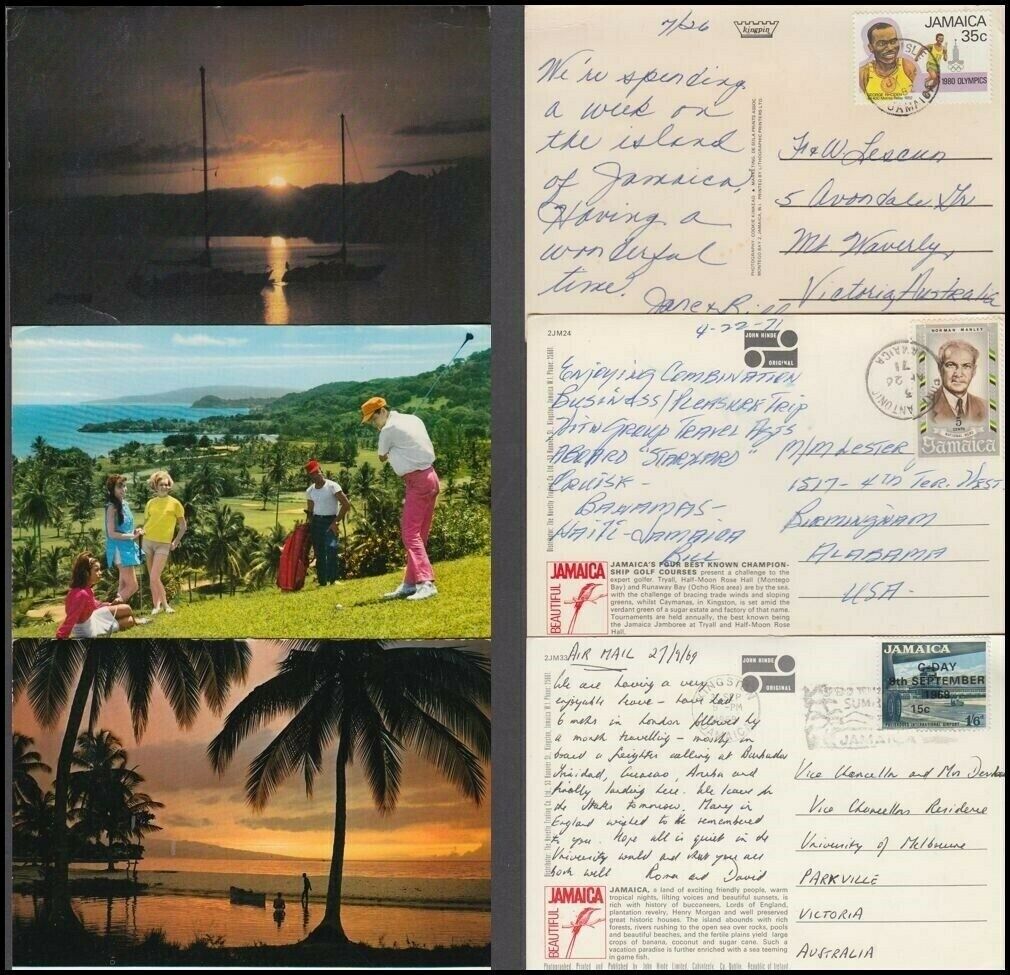 7/26
kingpin
JAMAICA
35c
1980 OLYMPICS
GEORGE RHODEN
JAMAICA
We're spending
a week on
the island
of Jamaica,
Having a
wonderful
time.
Jane & Bill
PHOTOGRAPHY: COOKIE KINKEAD ♦ MARKETING, DE SOLA PRINTS ASSOC
MONTEGO BAY 2, JAMAICA, W.I. PRINTED BY LITHOGRAPHIC PRINTERS LTD.
5 Avondale Gr
Mt Waverly,
Victoria, Australia
2JM24
4-22-71
JOHN HINDE
ORIGINAL
NORMAN MANLEY
5
CENTS
NATIONAL HERO
Jamaica
PORT ANTONIO
JAMAICA
71
Enjoying Combination
Business/Pleasure Trip
With Group Travel Agts
Aboard "Starward"
Cruise-
Bahamas-
Haiti-Jamaica
Bill
M/M Lester
1517-4th Ter. West
Birmingham
Alabama
USA-
JAMAICA
BEAUTIFUL
JAMAICA'S FOUR BEST KNOWN CHAMPION-
SHIP GOLF COURSES present a challenge to the
expert golfer. Tryall, Half-Moon Rose Hall (Montego
Bay) and Runaway Bay (Ocho Rios area) are by the sea,
with the challenge of bracing trade winds and sloping
greens, whilst Caymanas, in Kingston, is set amid the
verdant green of a sugar estate and factory of that name.
Tournaments are held annually, the best known being
the Jamaica Jamboree at Tryall and Half-Moon Rose
Hall.
2JM33
AIR MAIL 27/9/69
JOHN HINDE
ORIGINAL
JAMAICA
C-DAY
8th SEPTEMBER
1969
15c
1/6
PALISADOES INTERNATIONAL AIRPORT
KINGSTON
JAMAICA
JAMAICA
We are having a very
enjoyable leave - have had
6 mths in London followed by
a month travelling - mostly on
board a freighter calling at Barbados
Trinidad, Curacao, Aruba and
finally landing here. We leave for
the States tomorrow. Many in
England wished to be remembered
to you. Hope all is quiet in the
University world and that you are
both well Rona and David
Vice Chancellor and Mrs
Vice Chancellors Residence
University of Melbourne
PARKVILLE
VICTORIA
AUSTRALIA
JAMAICA
BEAUTIFUL
JAMAICA, a land of exciting friendly people, warm
tropical nights, lilting voices and beautiful sunsets, is
rich with history of buccaneers, Lords of England,
plantation revelry, Henry Morgan and well preserved
great historic houses. The island abounds with rich
forests, rivers rushing to the open sea over rocks, pools
and beautiful beaches, and the fertile plains yield large
crops of banana, coconut and sugar cane. Such a
vacation paradise is further enriched with a sea teeming
in game fish.
Photographed, Printed and Published by John Hinde Limited, Cabinteely, Co. Dublin, Republic of Ireland